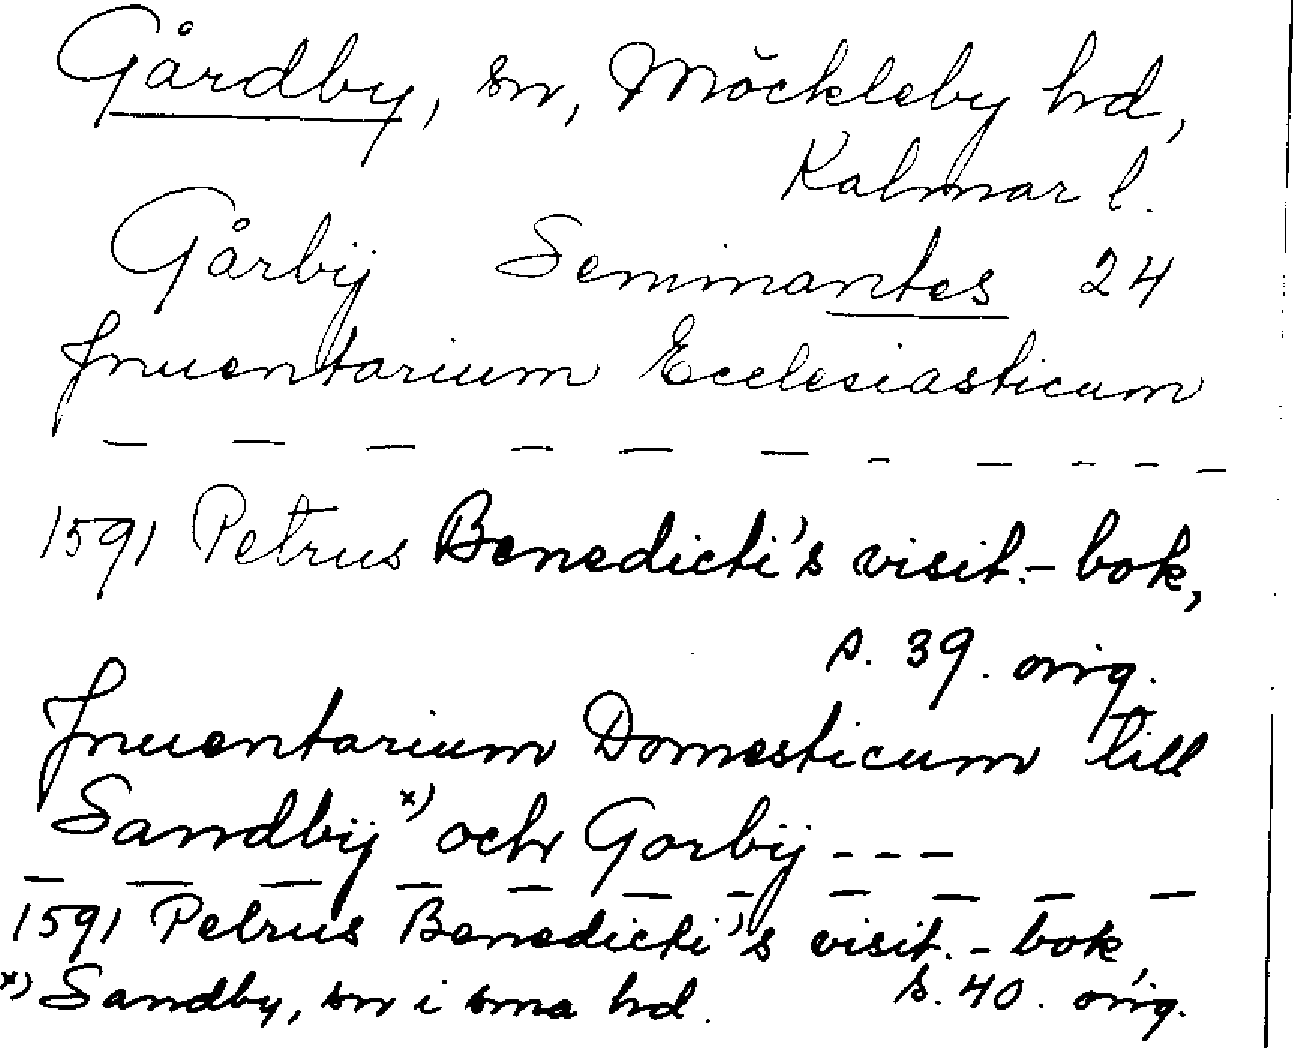 Gårdby, sn, Möckleby hd,
Kalmar l.
Gårbÿ Seminantes 24
Inuentarium Ecclesiasticum
— — — — — — - — - - —
1591 Petrus Benedicti's visit.-bok,
s. 39. orig.
Inuentarium Domesticum till
Sandbÿ x) och Gorbÿ - - -
— — — — — — - — — — —
1591 Petrus Benedicti's visit.-bok,
s. 40. orig.
x) Sandby, sn i sma hd.